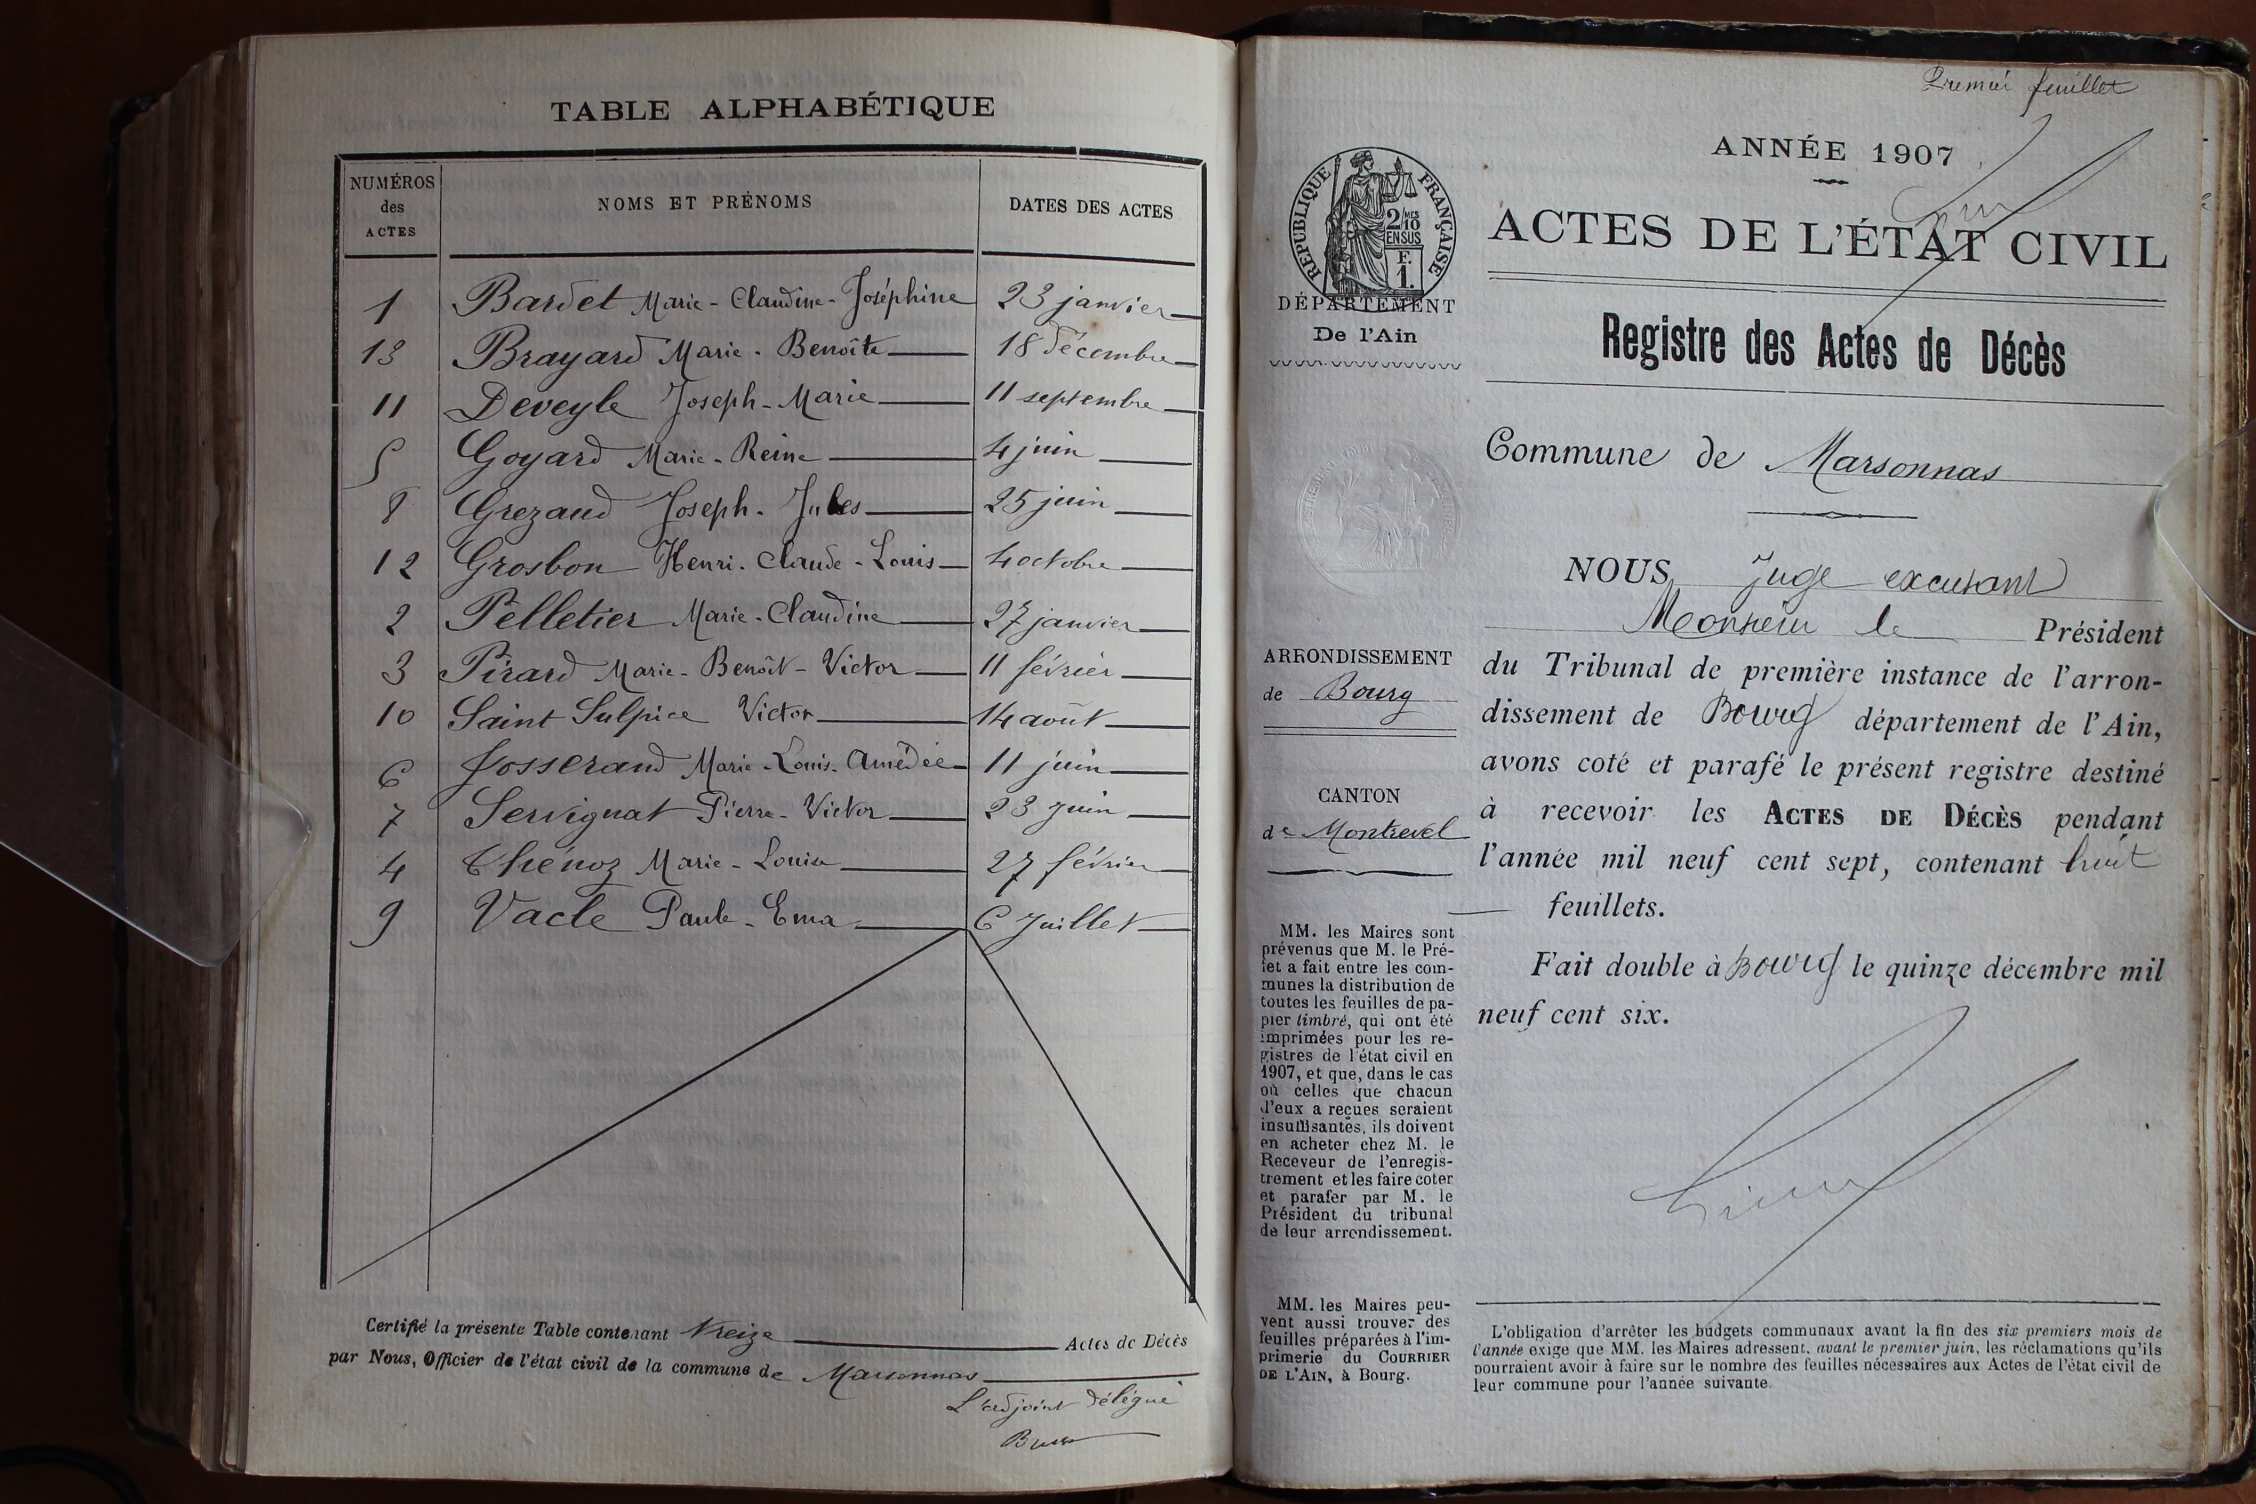 TABLE ALPHABÉTIQUE
NUMÉROS des ACTES
NOMS ET PRÉNOMS
DATES DES ACTES
1 Bardet Marie-Claudine-Joséphine 23 janvier
13 Brayard Marie-Benoîte 18 décembre
11 Deveyle Joseph-Marie 11 septembre
5 Goyard Marie-Reine 4 juin
8 Grezaud Joseph-Jules 25 juin
12 Grosbon Henri-Claude-Louis 4 octobre
2 Pelletier Marie-Claudine 27 janvier
3 Pirard Marie-Benoît-Victor 11 février
10 Saint Sulpice Victor 14 août
6 Josserand Marie-Louis-Amédée 11 juin
7 Servignat Pierre-Victor 23 juin
4 Thénoz Marie-Louise 27 février
9 Vacle Paule-Ema 6 Juillet
Certifié la présente Table contenant treize Actes de Décès
par Nous, Officier de l'état civil de la commune de Marsonnas
L'adjoint délégué
Premier feuillet
ANNÉE 1907
RÉPUBLIQUE FRANÇAISE
2/10MES
EN SUS
F.
1.
DÉPARTEMENT
De l'Ain
ACTES DE L'ÉTAT CIVIL
Registre des Actes de Décès
Commune de Marsonnas
NOUS Juge excusant
Monsieur le Président
du Tribunal de première instance de l'arron-
dissement de Bourg département de l'Ain,
avons coté et parafé le présent registre destiné
à recevoir les ACTES DE DÉCÈS pendant
l'année mil neuf cent sept, contenant huit
feuillets.
Fait double à Bourg le quinze décembre mil
neuf cent six.
ARRONDISSEMENT
de Bourg
CANTON
de Montrevel
MM. les Maires sont
prévenus que M. le Pré-
fet a fait entre les com-
munes la distribution de
toutes les feuilles de pa-
pier timbré, qui ont été
imprimées pour les re-
gistres de l'état civil en
1907, et que, dans le cas
où celles que chacun
d'eux a reçues seraient
insuffisantes, ils doivent
en acheter chez M. le
Receveur de l'enregis-
trement et les faire coter
et parafer par M. le
Président du tribunal
de leur arrondissement.
MM. les Maires peu-
vent aussi trouver des
feuilles préparées à l'im-
primerie du COURRIER
DE L'AIN, à Bourg.
L'obligation d'arrêter les budgets communaux avant la fin des six premiers mois de
l'année exige que MM. les Maires adressent, avant le premier juin, les réclamations qu'ils
pourraient avoir à faire sur le nombre des feuilles nécessaires aux Actes de l'état civil de
leur commune pour l'année suivante.